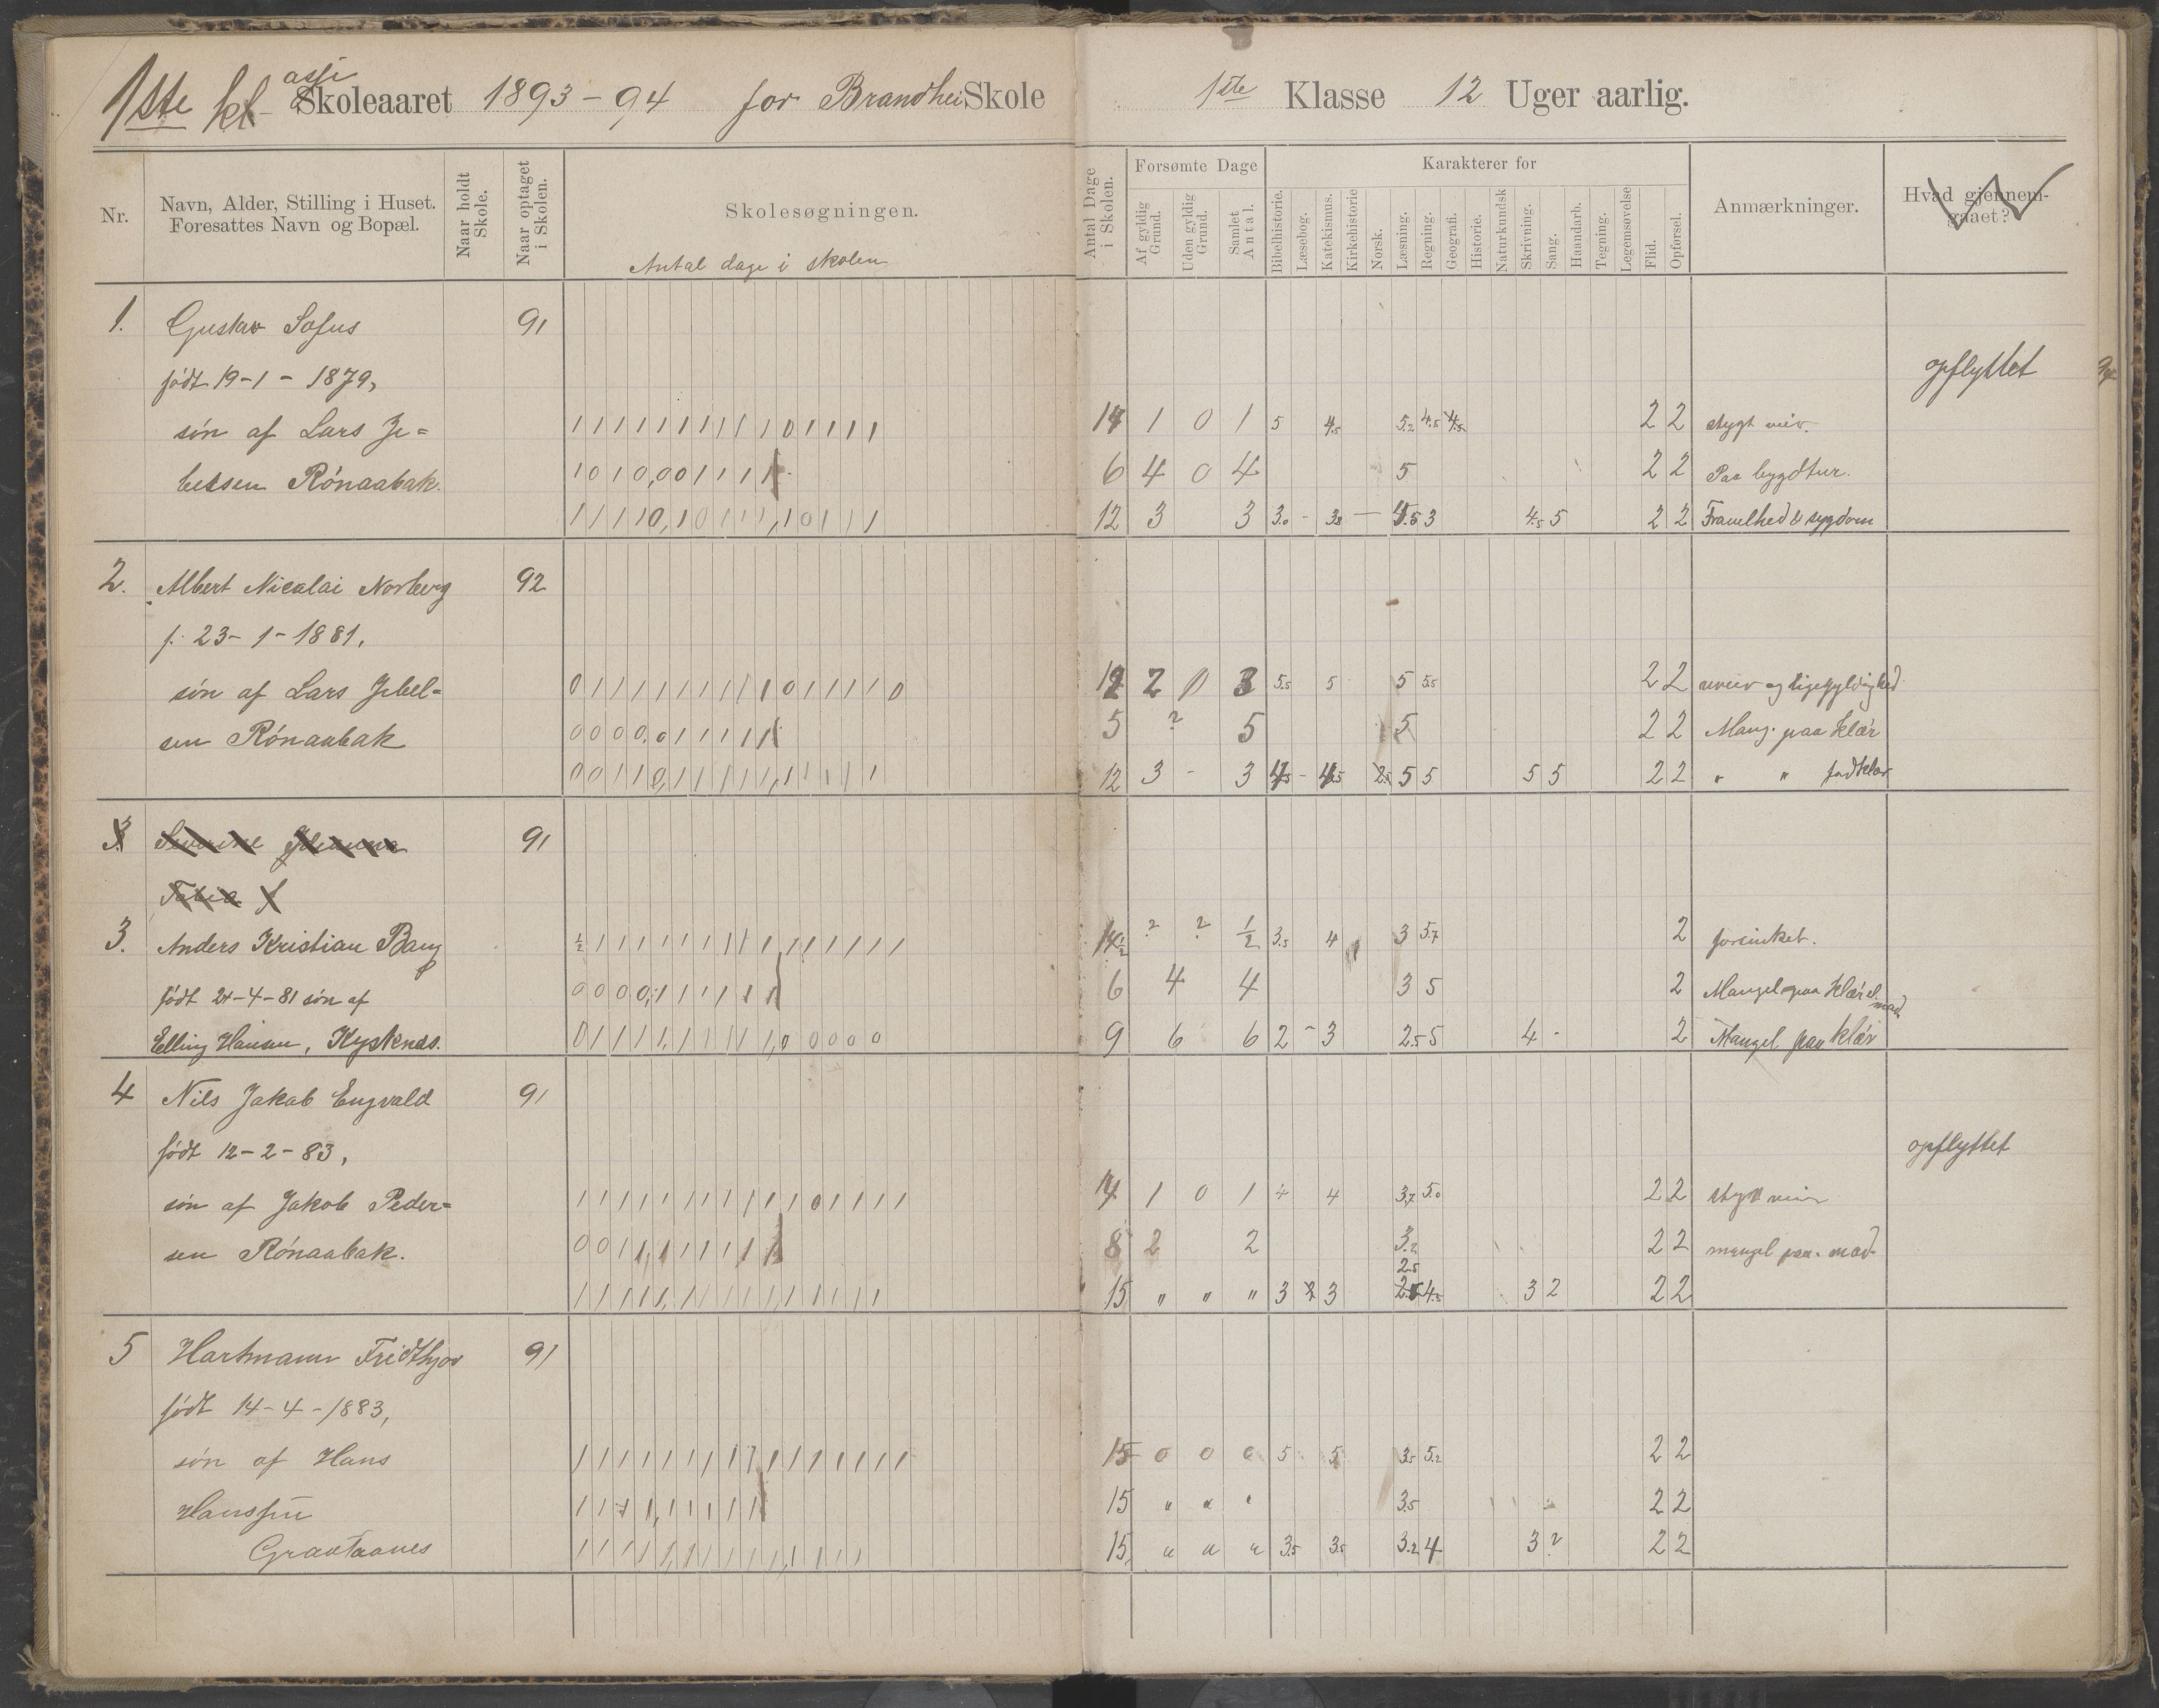 1ste kl asse Skoleaaret 1893-94 for Brandhei Skole
1ste Klasse 12 Uger aarlig.
Nr.
Navn, Alder, Stilling i Huset. Foresattes Navn og Bopæl.
Naar holdt Skole.
Naar optaget i Skolen.
Skolesøgningen.
Antal dage i skolen
Antal Dage i Skolen.
Forsømte Dage
Af gyldig Grund.
Uden gyldig Grund.
Samlet Antal.
Karakterer for
Bibelhistorie.
Læsebog.
Katekismus.
Kirkehistorie
Norsk.
Læsning.
Regning.
Geografi.
Historie.
Naturkundsk
Skrivning.
Sang.
Haandarb.
Tegning.
Legemsøvelse
Flid.
Opførsel.
Anmærkninger.
Hvad gjennem- gaaet?
1. Gustav Sofus 91
født 19-1-1879, opflyttet
søn af Lars Je= 1 1 1 1 1 1 1 1 1 1 0 1 1 1 1 14 1 0 1 5 4.5 5.2 4.5 4.5 2 2 stygt veir.
belsen Rónaabak. 1 0 1 0,0 0 1 1 1 1 6 4 0 4 5 2 2 Paa bygdtur.
12 3 3 3.0 - 3.8 - 4.5 3 4.5 5 2 2 sygdom
2. Albert Nicolai Norberg 92
f. 23-1-1881,
søn af Lars Jebel= 0 1 1 1 1 1 1 1 1 1 0 1 1 1 1 0 12 2 0 3 5.5 5 5 5.5 2 2 uveir og ligegyldighed
sen Rónaabak 0 0 0 0,0 1 1 1 1 1 5 ? 5 5 2 2 Mang. paa klær
12 3 - 3 4.5 - 4.5 2.5 5 5 5 5 2 2 " "
3 91
3. Anders Kristian Bang ½ 1 1 1 1 1 1 1 1 1 1 1 1 1 1 1 14½ ? ? ½ 3.5 4 3 5.7 2 forsinket.
født 21-4-81 søn af 0 0 0 0,1 1 1 1 1 1 6 4 4 3 5 2 Mangel paa klær el. mad
Elling Hansen, Kysknes. 9 6 6 2 - 3 2.5 5 4 - 2 Mangel paa klær
4 Nils Jakob Engvald 91
født 12-2-83, opflyttet
søn af Jakob Peder= 1 1 1 1 1 1 1 1 1 1 1 0 1 1 1 1 14 1 0 1 4 4 3.7 5.0 2 2 stygt veir
sen Rónaabak. 0 0 1 1,1 1 1 1 1 1 8 2 2 3.2 2 2 mangel paa mad
2.5
15 " " " 3 2 3 2.5 4.5 3 2 2 2
5 Hartmann Fridthjov 91
født 14-4-1883,
søn af Hans 1 1 1 1 1 1 1 1 1 1 1 1 1 1 1 1 15 0 0 0 5 5 3.5 5.2 2 2
Hanssen 15 " " " 3.5 2 2
15, " " " 3.5 3.5 3.2 4 3 ? 2 2